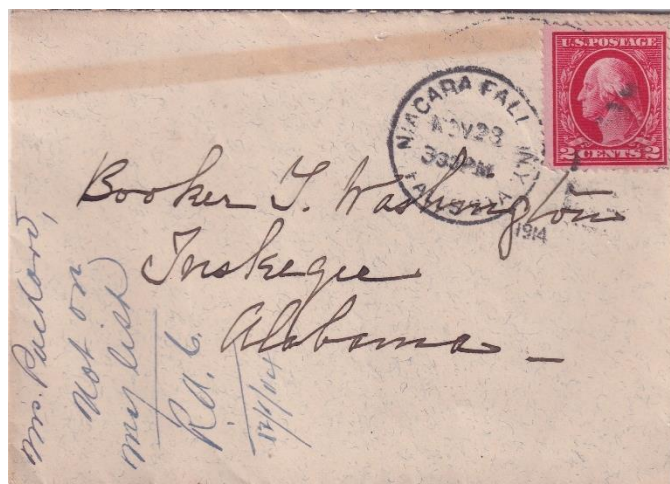 U.S. POSTAGE
2 CENTS 2
NIAGARA FALL N.Y.
NOV 28
330 PM
1914
Booker T. Washington
Tuskegee
Alabama
Mrs. Packard,
Not on
my list
12/1/14